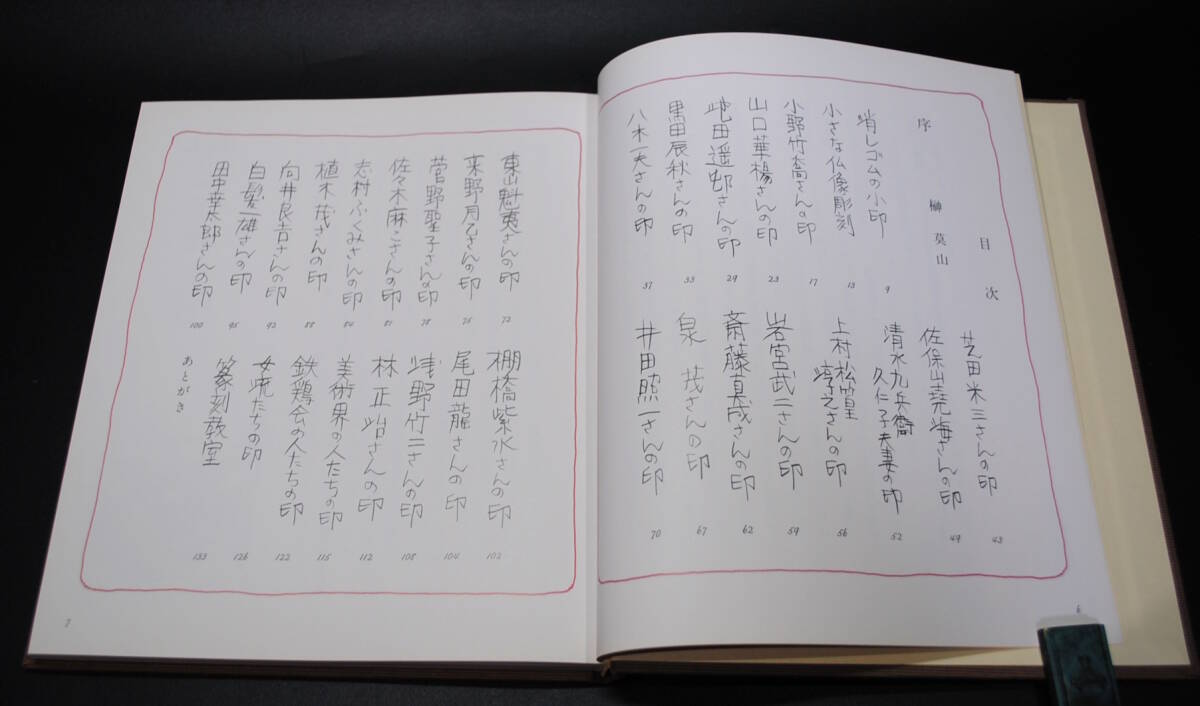 目次
序 榊 莫山
消しゴムの小印 9
小さな仏像彫刻 13
小野竹喬さんの印 17
山口華楊さんの印 23
池田遥邨さんの印 29
黒田辰秋さんの印 33
八木一夫さんの印 37
芝田米三さんの印 43
佐保山堯海さんの印 49
清水九兵衞
久仁子夫妻の印 52
上村松篁
淳之さんの印 56
岩宮武二さんの印 59
斎藤真成さんの印 62
泉 茂さんの印 67
井田照一さんの印 70
6
東山魁夷さんの印 72
来野月乙さんの印 75
菅野聖子さんの印 78
佐々木麻こさんの印 81
志村ふくみさんの印 84
植木茂さんの印 88
向井良吉さんの印 92
白髪一雄さんの印 95
田中幸太郎さんの印 100
棚橋紫水さんの印 102
尾田龍さんの印 104
浅野竹二さんの印 108
林正治さんの印 112
美術界の人たちの印 115
鉄鶏会の人たちの印 122
女流たちの印 126
篆刻教室 133
あとがき
7